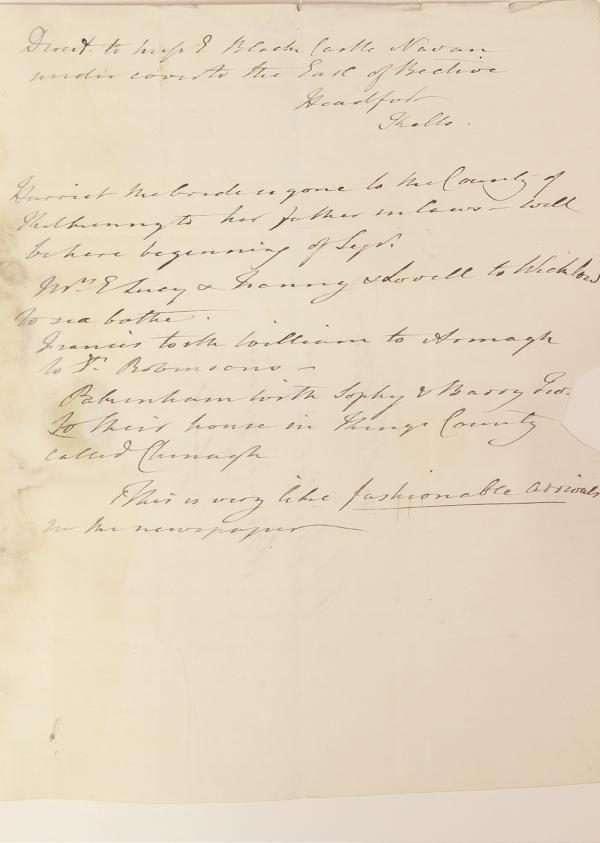 Direct to Miss E Black Castle Navan
under cover to the Earl of Bective
Headfort
Kells.
Harriet the bride is gone to the County of
Kilkenny to her father in laws – will
be here beginning of Sepr.
Mrs E Lucy & Fanny & Lovell to Wicklow
to sea bathe.
Francis with William to Armagh
to Dr. Robinsons –
Pakenham with Sophy & Barry Fox.
To their house in Kings County
called Clonagh
This is very like fashionable arrivals
in the newspaper